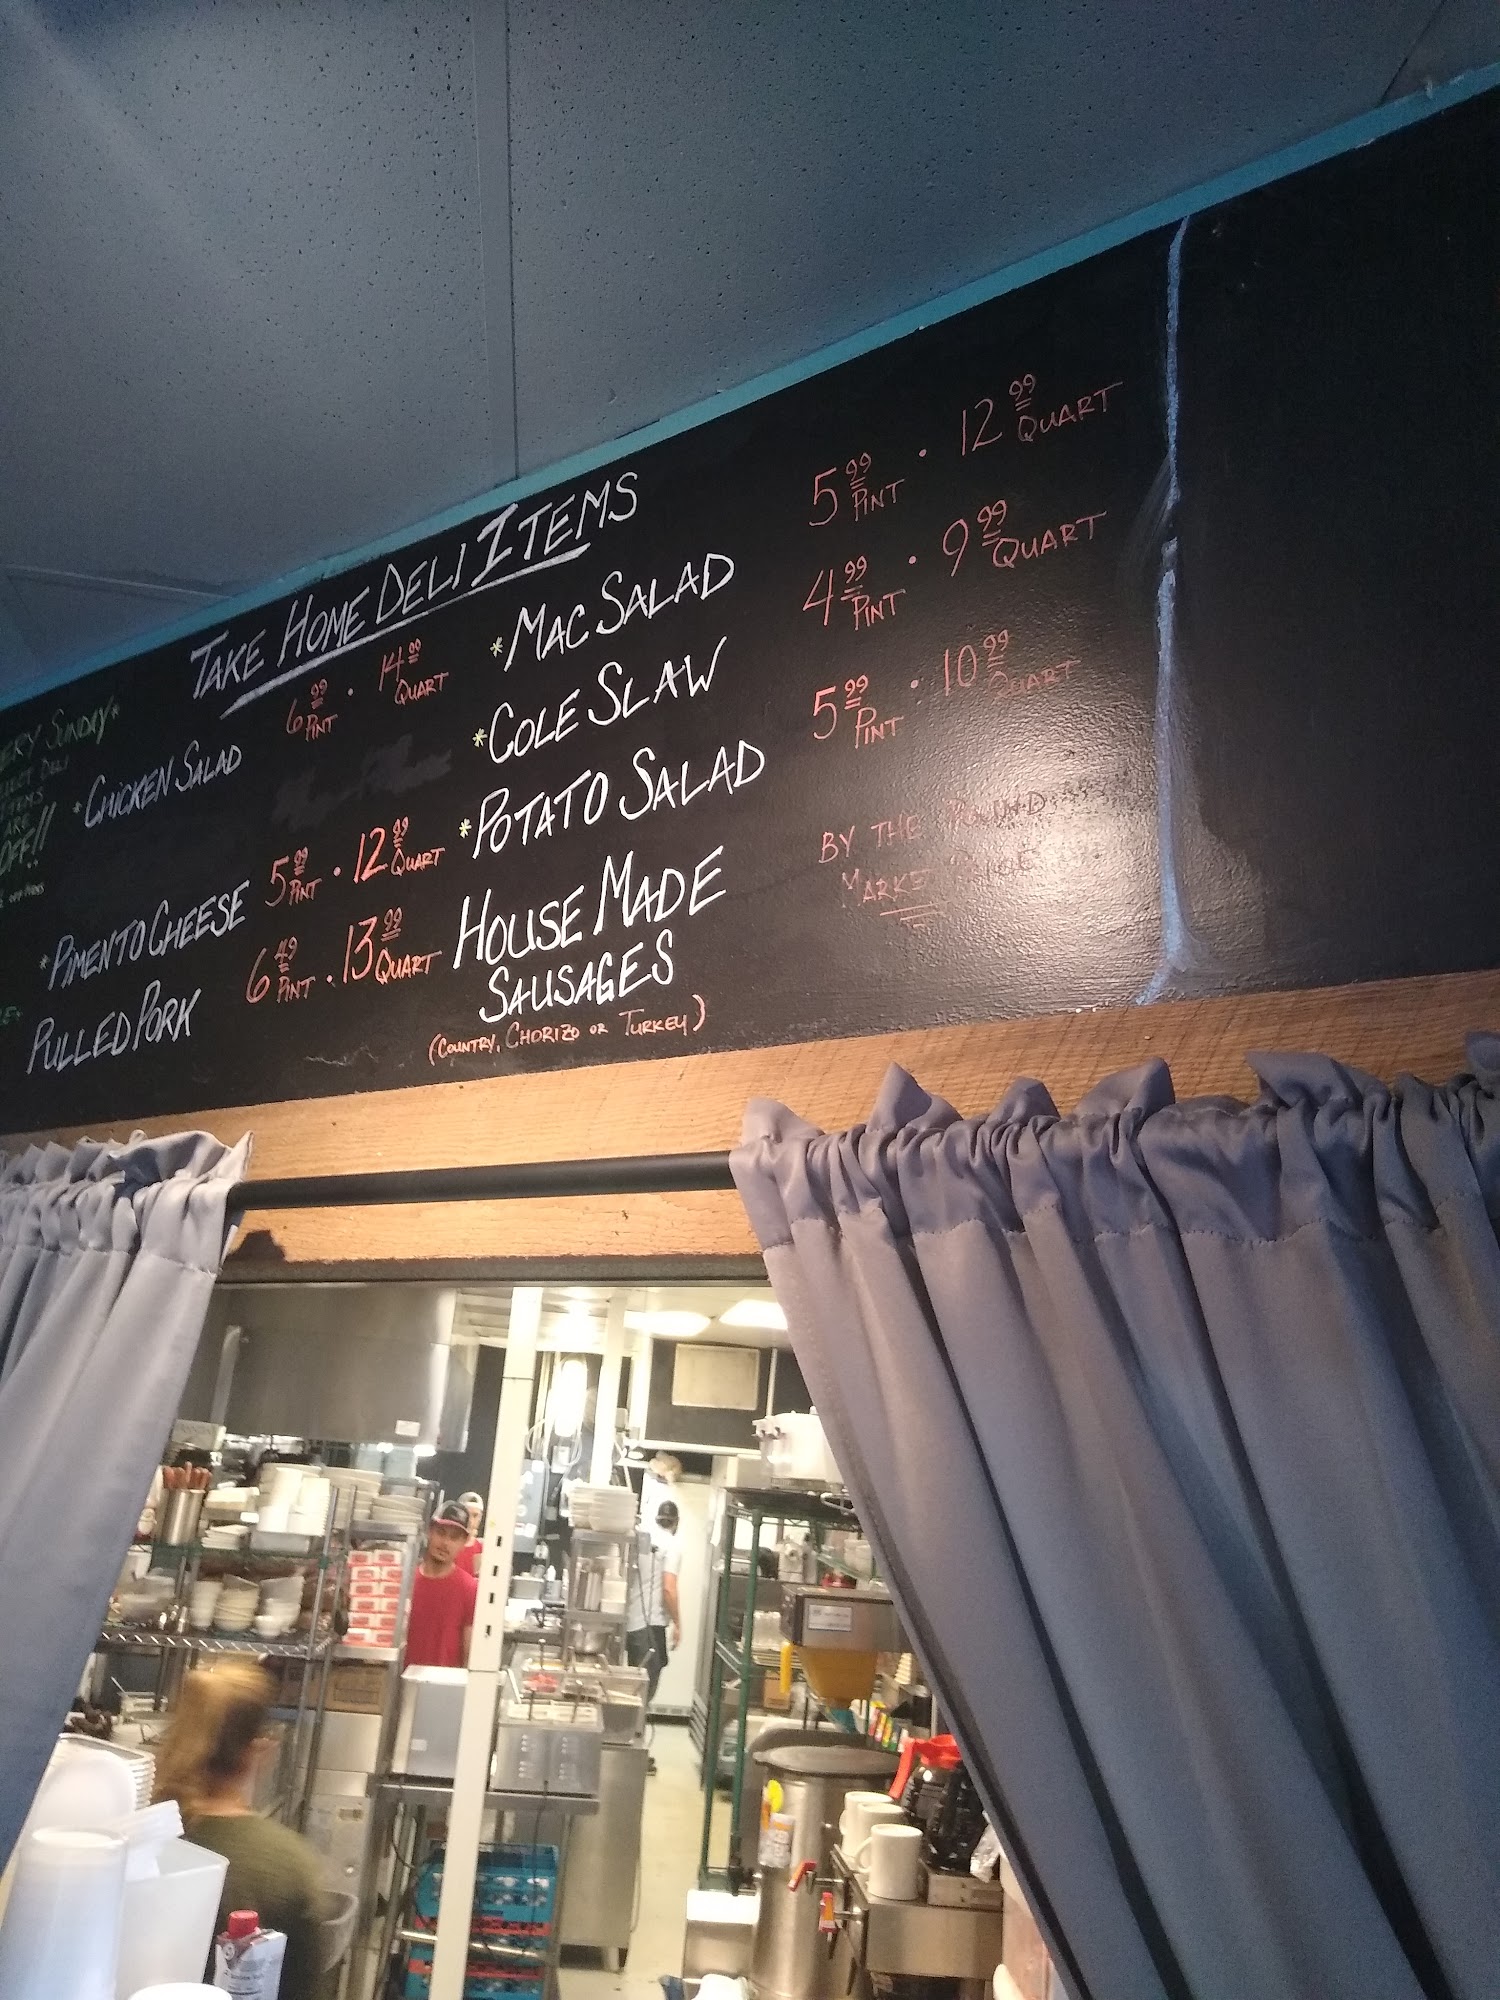 Take Home Deli Items
Sunday*
Deli
Items
Are
OFF!!
*Chicken Salad 6.99 Pint • 14.99 Quart
*Pimento Cheese 5.99 Pint • 12.99 Quart
Pulled Pork 6.49 Pint • 13.99 Quart
*Mac Salad 5.99 Pint • 12.99 Quart
*Cole Slaw 4.99 Pint • 9.99 Quart
*Potato Salad 5.99 Pint • 10.99 Quart
House Made
Sausages
By the Pound
Market Price
(Country, Chorizo or Turkey)